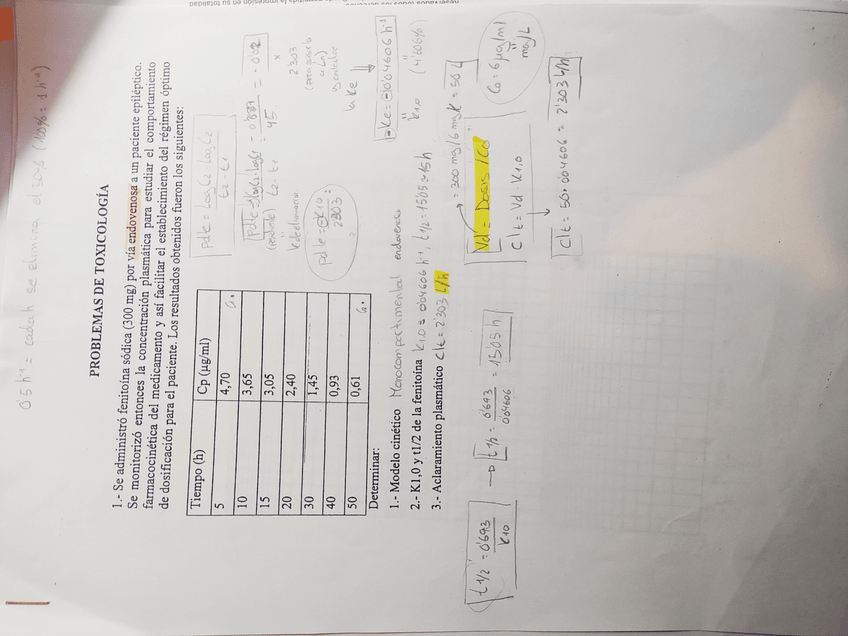 0'5 h⁻¹ = cada h se elimina el 50% (100% = 1 h⁻¹)
PROBLEMAS DE TOXICOLOGÍA
1.- Se administró fenitoína sódica (300 mg) por vía endovenosa a un paciente epiléptico.
Se monitorizó entonces la concentración plasmática para estudiar el comportamiento
farmacocinética del medicamento y así facilitar el establecimiento del régimen óptimo
de dosificación para el paciente. Los resultados obtenidos fueron los siguientes:
Tiempo (h) Cp (µg/ml)
5 4,70
10 3,65
15 3,05
20 2,40
30 1,45
40 0,93
50 0,61
Pdte = Log C2 - Log C1
t2 - t1
Pdte = Log C2 - Log C1 = - 0'887 = - 0'02
(pendiente) t2 - t1 45
K de eliminación
x
2'303
Pdte = - K10
2'303
la Ke
- Ke = - 0'04606 h⁻¹
K1,0 (4'606%)
Determinar:
1.- Modelo cinético Monocompartimental endovenoso
2.- K1,0 y t1/2 de la fenitoína K1,0 = 0'04606 h⁻¹, t1/2 = 15'05 ≈ 15 h
3.- Aclaramiento plasmático Clt = 2'303 L/h
t 1/2 = 0'693
K10
t 1/2 = 0'693 = 15'05 h
0'04606
Vd = Dosis / C0 = 300 mg / 6 mg/L = 50 L
Clt = Vd · K1,0
C0 = 6 µg/ml
mg/L
Clt = 50 · 0'04606 = 2'303 L/h